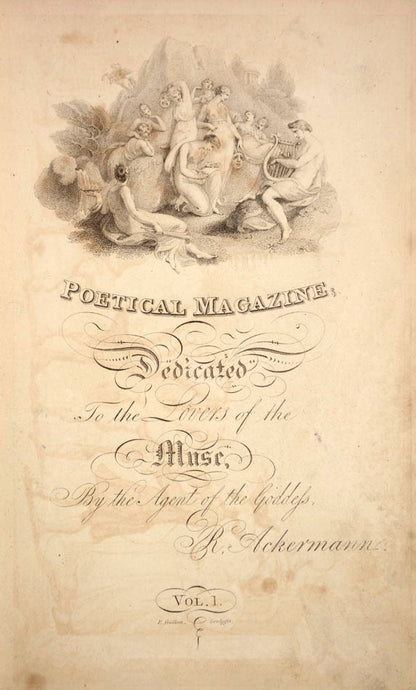 POETICAL MAGAZINE;
Dedicated
To the Lovers of the
Muse,
By the Agent of the Goddeſs,
R. Ackermann.
VOL. 1.